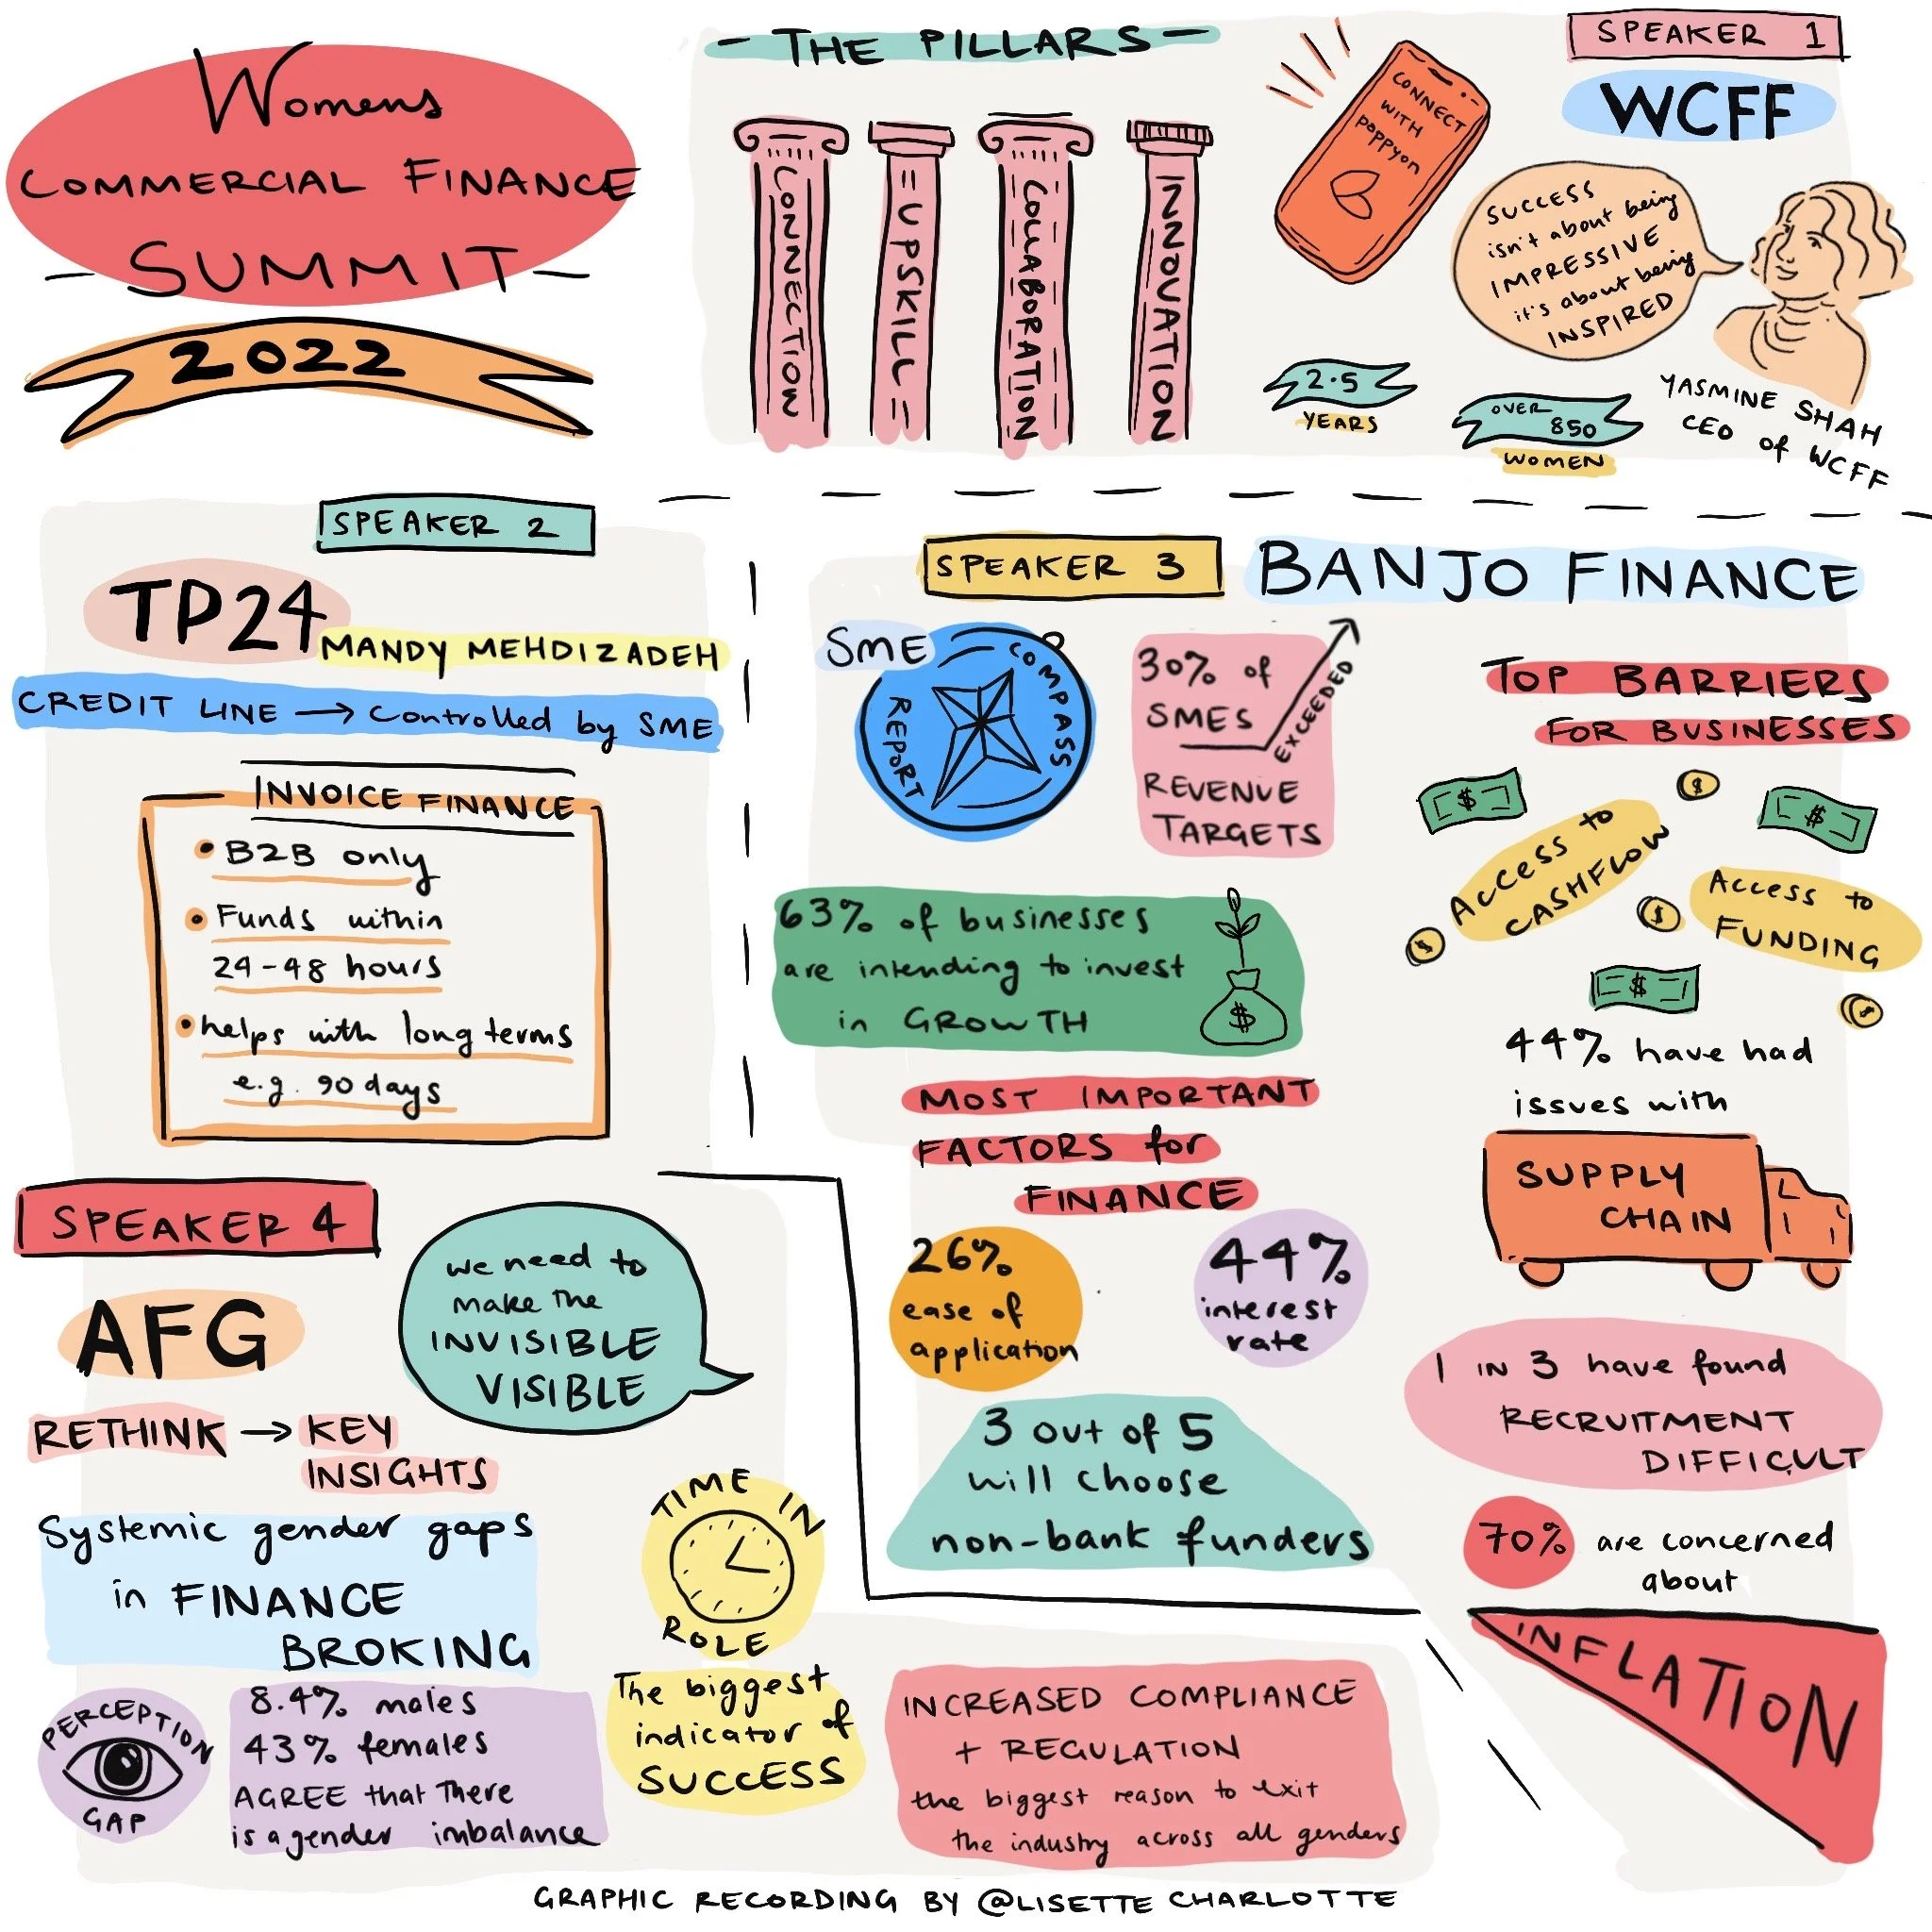 Womens
COMMERCIAL FINANCE
SUMMIT
2022
- THE PILLARS -
CONNECTION
= UPSKILL =
COLLABORATION
INNOVATION
CONNECT
WITH
poppyon
SPEAKER 1
WCFF
SUCCESS
isn't about being
IMPRESSIVE
it's about being
INSPIRED
2.5
YEARS
OVER
850
WOMEN
YASMINE SHAH
CEO of WCFF
SPEAKER 2
TP24
MANDY MEHDIZADEH
CREDIT LINE → Controlled by SME
INVOICE FINANCE
• B2B only
• Funds within
24-48 hours
• helps with long terms
e.g. 90 days
SPEAKER 3
BANJO FINANCE
SME
COMPASS
REPORT
30% of
SMES
EXCEEDED
REVENUE
TARGETS
63% of businesses
are intending to invest
in GROWTH
$
MOST IMPORTANT
FACTORS for
FINANCE
26%
ease of
application
44%
interest
rate
3 out of 5
will choose
non-bank funders
TOP BARRIERS
FOR BUSINESSES
$
$
$
Access to
CASHFLOW
$
$
Access to
FUNDING
$
$
44% have had
issues with
SUPPLY
CHAIN
1 IN 3 have found
RECRUITMENT
DIFFICULT
70% are concerned
about
INFLATION
SPEAKER 4
AFG
we need to
make the
INVISIBLE
VISIBLE
RETHINK → KEY
INSIGHTS
Systemic gender gaps
in FINANCE
BROKING
PERCEPTION
GAP
8.4% males
43% females
AGREE that there
is a gender imbalance
TIME IN
ROLE
The biggest
indicator of
SUCCESS
INCREASED COMPLIANCE
+ REGULATION
the biggest reason to exit
the industry across all genders
GRAPHIC RECORDING BY @LISETTE CHARLOTTE